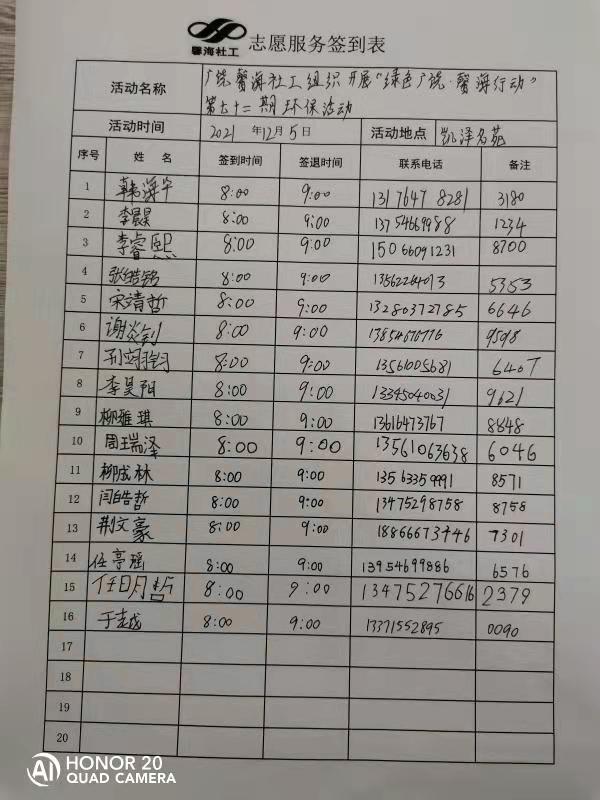 馨海社工 志愿服务签到表
活动名称 广饶馨海社工组织开展“绿色广饶·馨海行动”
第七十二期环保活动
活动时间 2021年12月5日 活动地点 凯泽名苑
序号 姓名 签到时间 签退时间 联系电话 备注
1 韩海宁 8:00 9:00 13176478281 3180
2 李晨昊 8:00 9:00 13754669988 1234
3 李睿熙 8:00 9:00 15066091231 8700
4 张皓铭 8:00 9:00 13562264073 5353
5 宋靖哲 8:00 9:00 13280372785 6646
6 谢炎钊 8:00 9:00 13854676776 9598
7 8:00 9:00 13561005681 6407
8 李昊阳 8:00 9:00 13345040031 9621
9 柳雅琪 8:00 9:00 13616473767 8848
10 周瑞泽 8:00 9:00 13561063638 6046
11 柳成林 8:00 9:00 13563359991 8571
12 闫皓哲 8:00 9:00 13475298758 8758
13 荆文豪 8:00 9:00 18866673446 7301
14 任亭瑶 8:00 9:00 13954699886 6576
15 任明哲 8:00 9:00 13475276616 2379
16 于越 8:00 9:00 13371552895 0090
17
18
19
20
HONOR 20
QUAD CAMERA